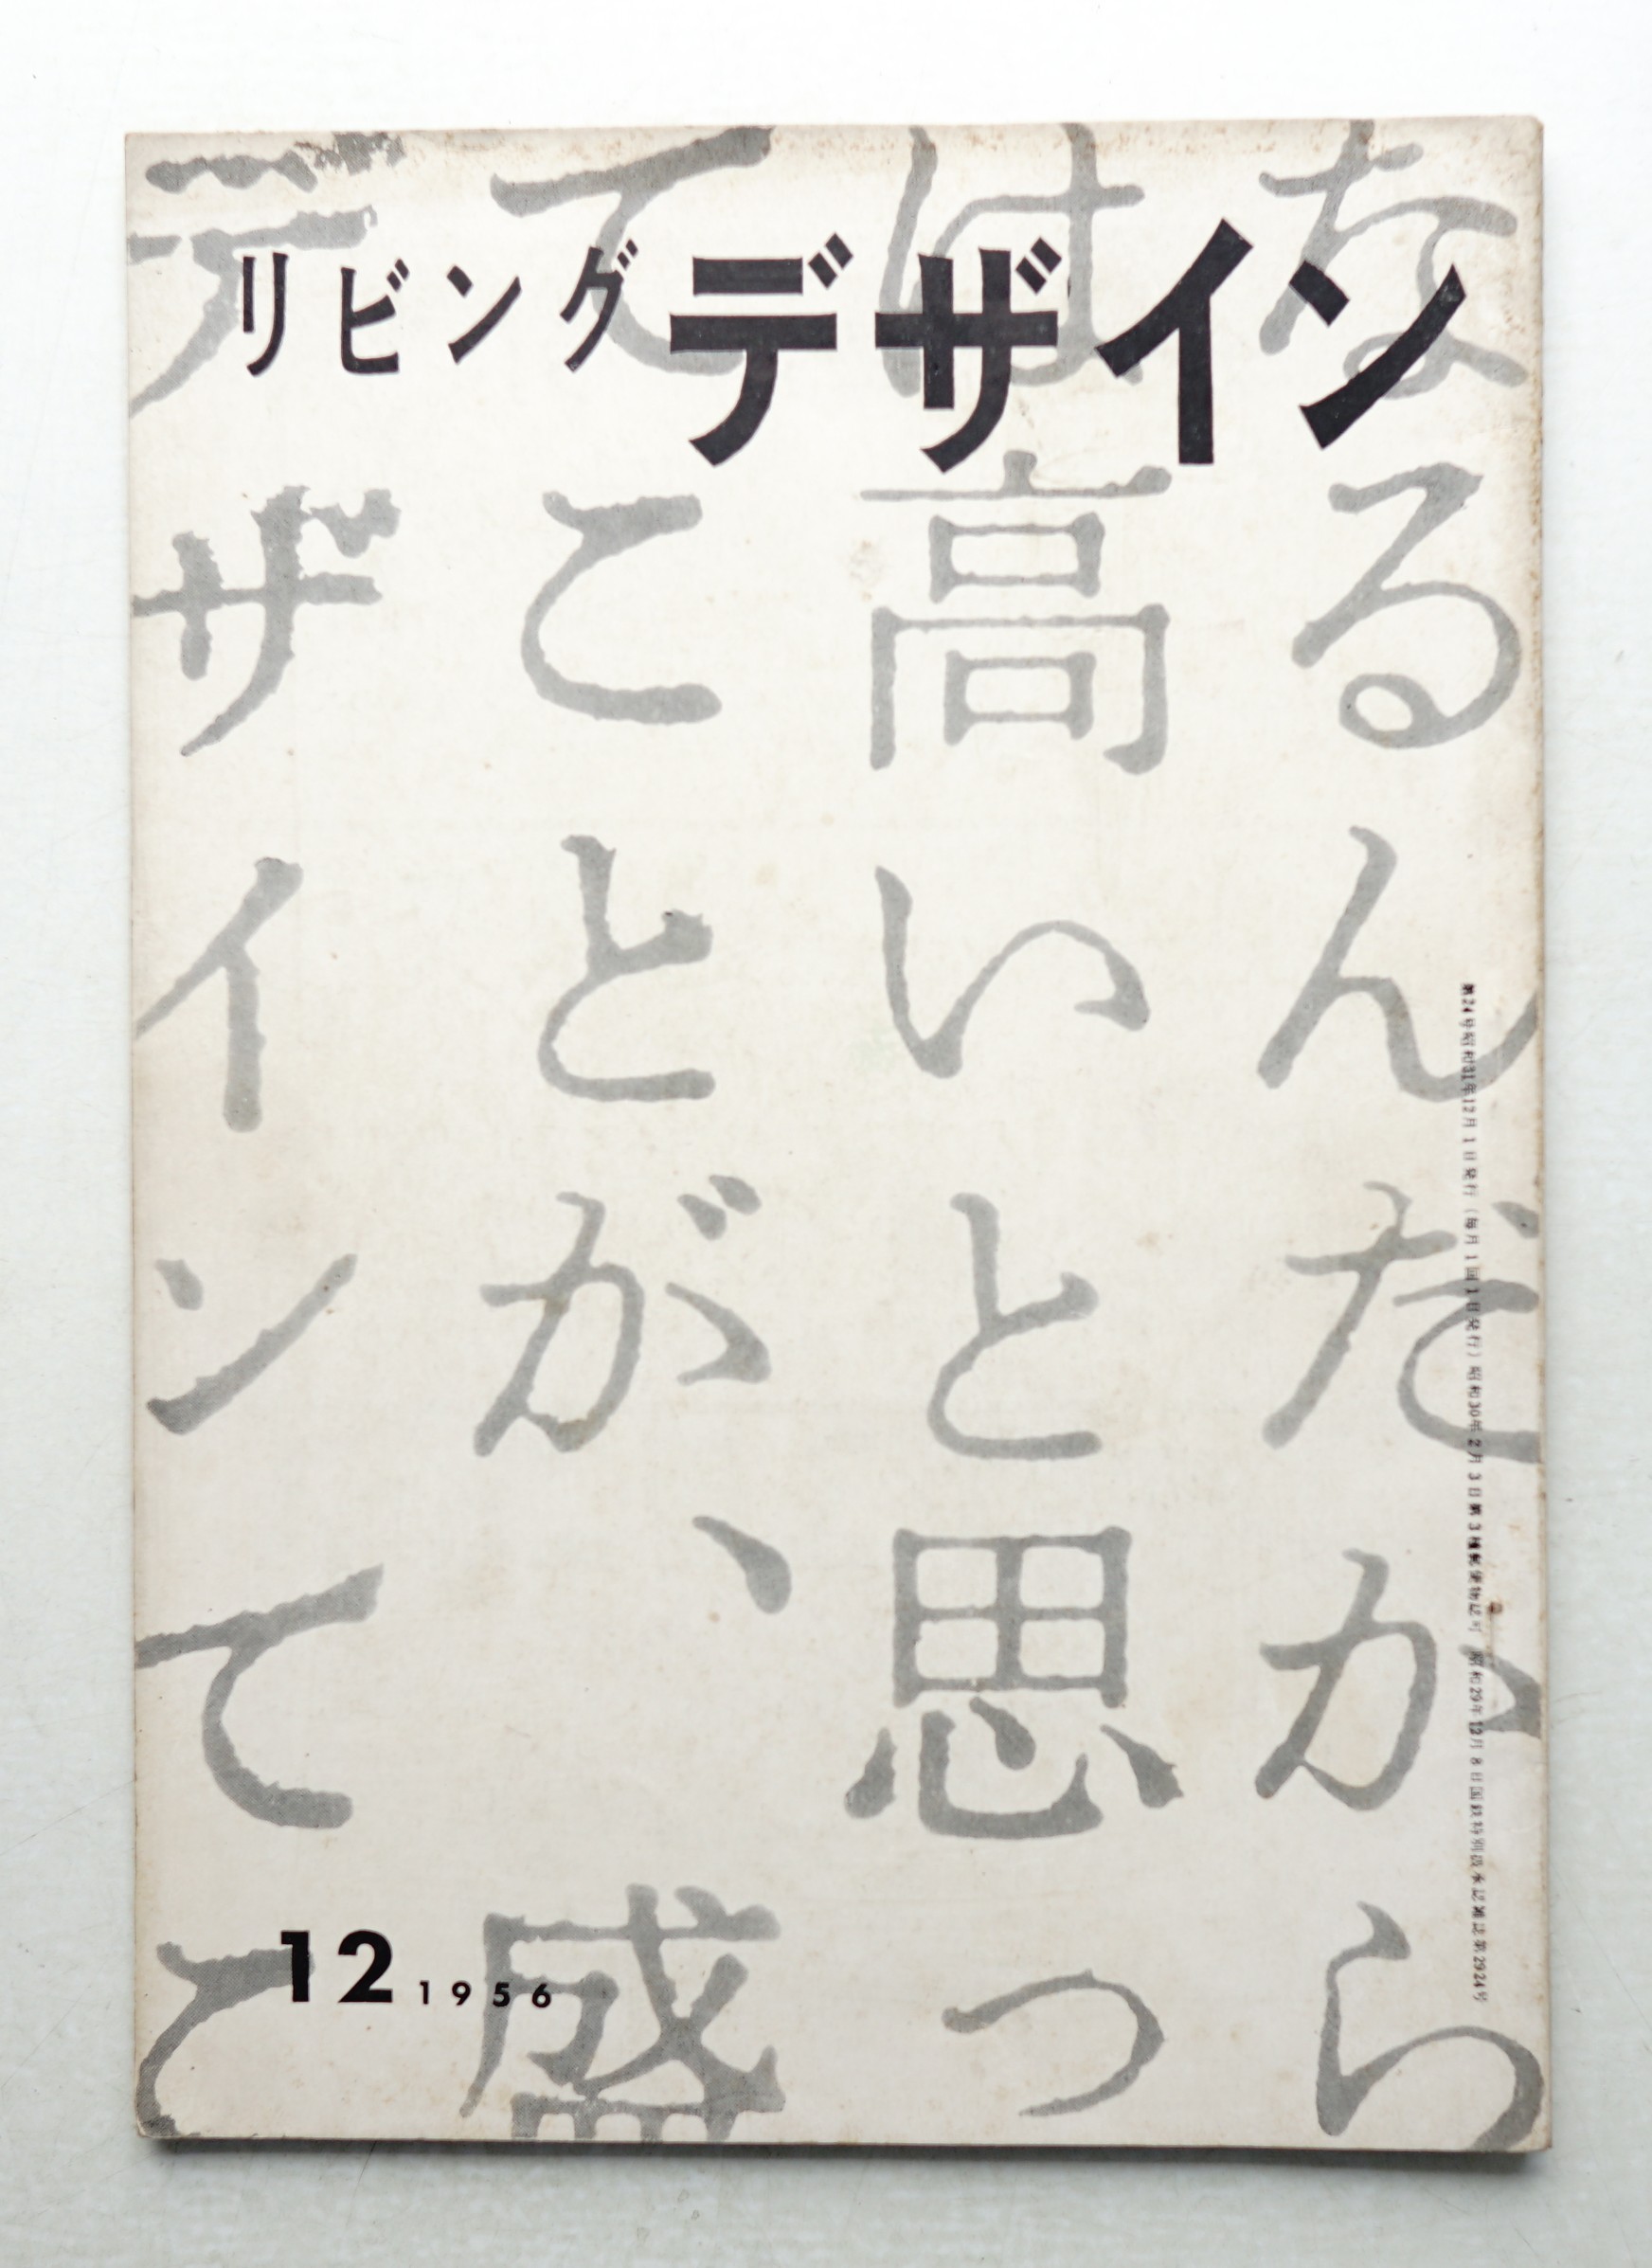 リビングデザイン
なるんだから
は高いと思っ
てことが、盛
デザインてこ
第24号昭和31年12月1日発行（毎月1回1日発行）昭和30年2月3日第3種郵便物認可 昭和29年12月8日国鉄特別扱承認雑誌第2924号
12 1956